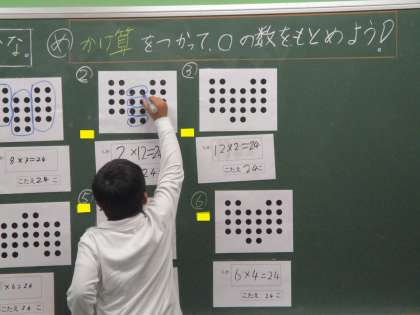 な。
め かけ算をつかって、○の数をもとめよう!
②
③
8×3=24
こたえ 24こ
2×12=24
24
12×2=24
こたえ 24こ
⑤
⑥
×6=24
こたえ 24こ
6×4=24
こたえ 24こ